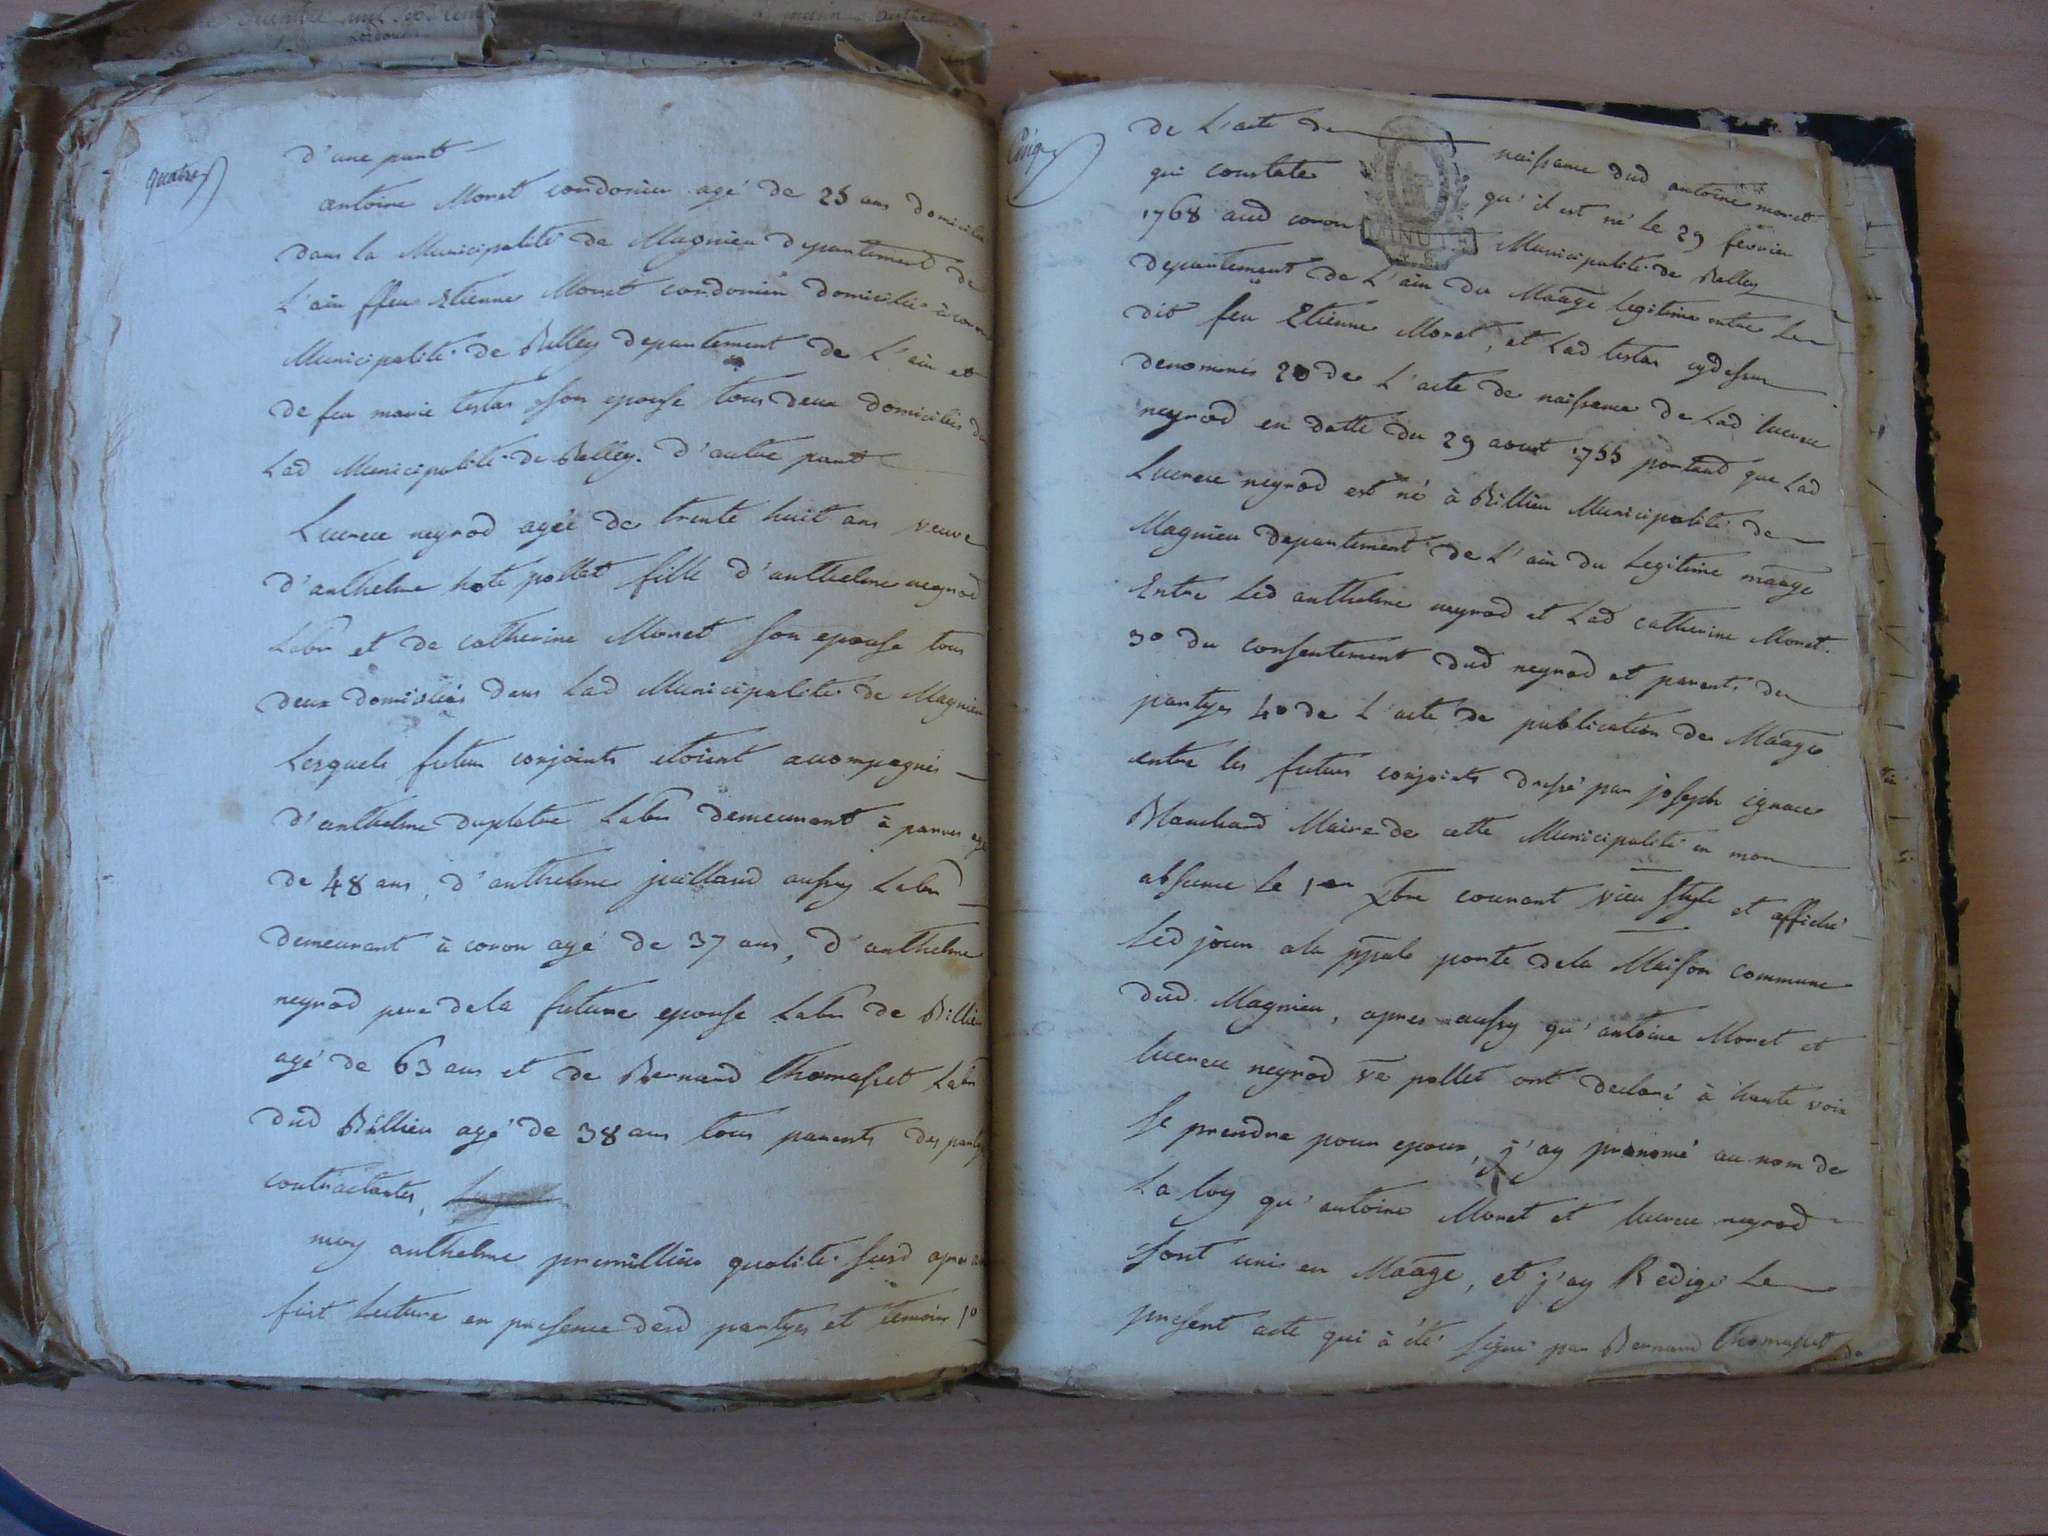 quatre
d'une part
antoine Monet cordonier agé de 25 ans domicilié
dans la Municipalité de Magnieu departement de
L'ain ffeu Etienne Monet cordonier domicilié à coron
Municipalité de Belley departement de L'ain et
de feu marie testas son epouse tous deux domiciliés de
Lad Municipalité de Belley. d'autre part
Lucrece neyrod agée de trente huit ans veuve
d'anthelme hote pollet fille d'anthelme neyrod
Labr et de catherine Monet son epouse tous
deux domiciliés dans Lad Municipalité de Magnieu
Lesquels futur conjoints etoient accompagnés
d'anthelme duplatre Labr demeurant à parves agé
de 48 ans, d'anthelme juilland aussy Labr
demeurant à coron agé de 37 ans, d'anthelme
neyrod pere dela future epouse Labr de Billieu
agé de 63 ans et de Bernard Thomasset Labr
dud Billieu agé de 38 ans tous parents des partyes
contractantes,
moy anthelme premillieu qualité susd apres avoir
fait Lecture en presence desd partyes et temoins 1o
Cinq
de L'acte de naissance dud antoine monet
qui constate qu'il est né le 29 fevrier
1768 aud coron Municipalité de Belley
MINUTE
departement de L'ain du Maage legitime entre Le
dit feu Etienne Monet, et Lad testas cydessus
denommés 20 de L'acte de naissance de Lad lucrece
neyrod en datte du 29 aout 1755 portant que Lad
Lucrece neyrod est né à Billieu Municipalité de
Magnieu departement de L'ain du Legitime maage
Entre Led anthelme neyrod et Lad catherine Monet.
3o du consentement dud neyrod et parents des
partyes 4o de L'acte de publication de Maage
entre les futurs conjoints dressé par joseph ignace
Blanchard Maire de cette Municipalité en mon
absence le 1er Xbre courant vieu style et affiché
Led jour a la ppale porte dela Maison commune
dud Magnieu, apres aussy qu'antoine Monet et
lucrece neyrod ve pollet ont declaré à haute voix
se prendre pour epoux, j'ay prononcé au nom de
La loy qu'antoine Monet et lucrece neyrod
sont unis en Maage, et j'ay Redigé Le
present acte qui à été signé par Bernard Thomasset